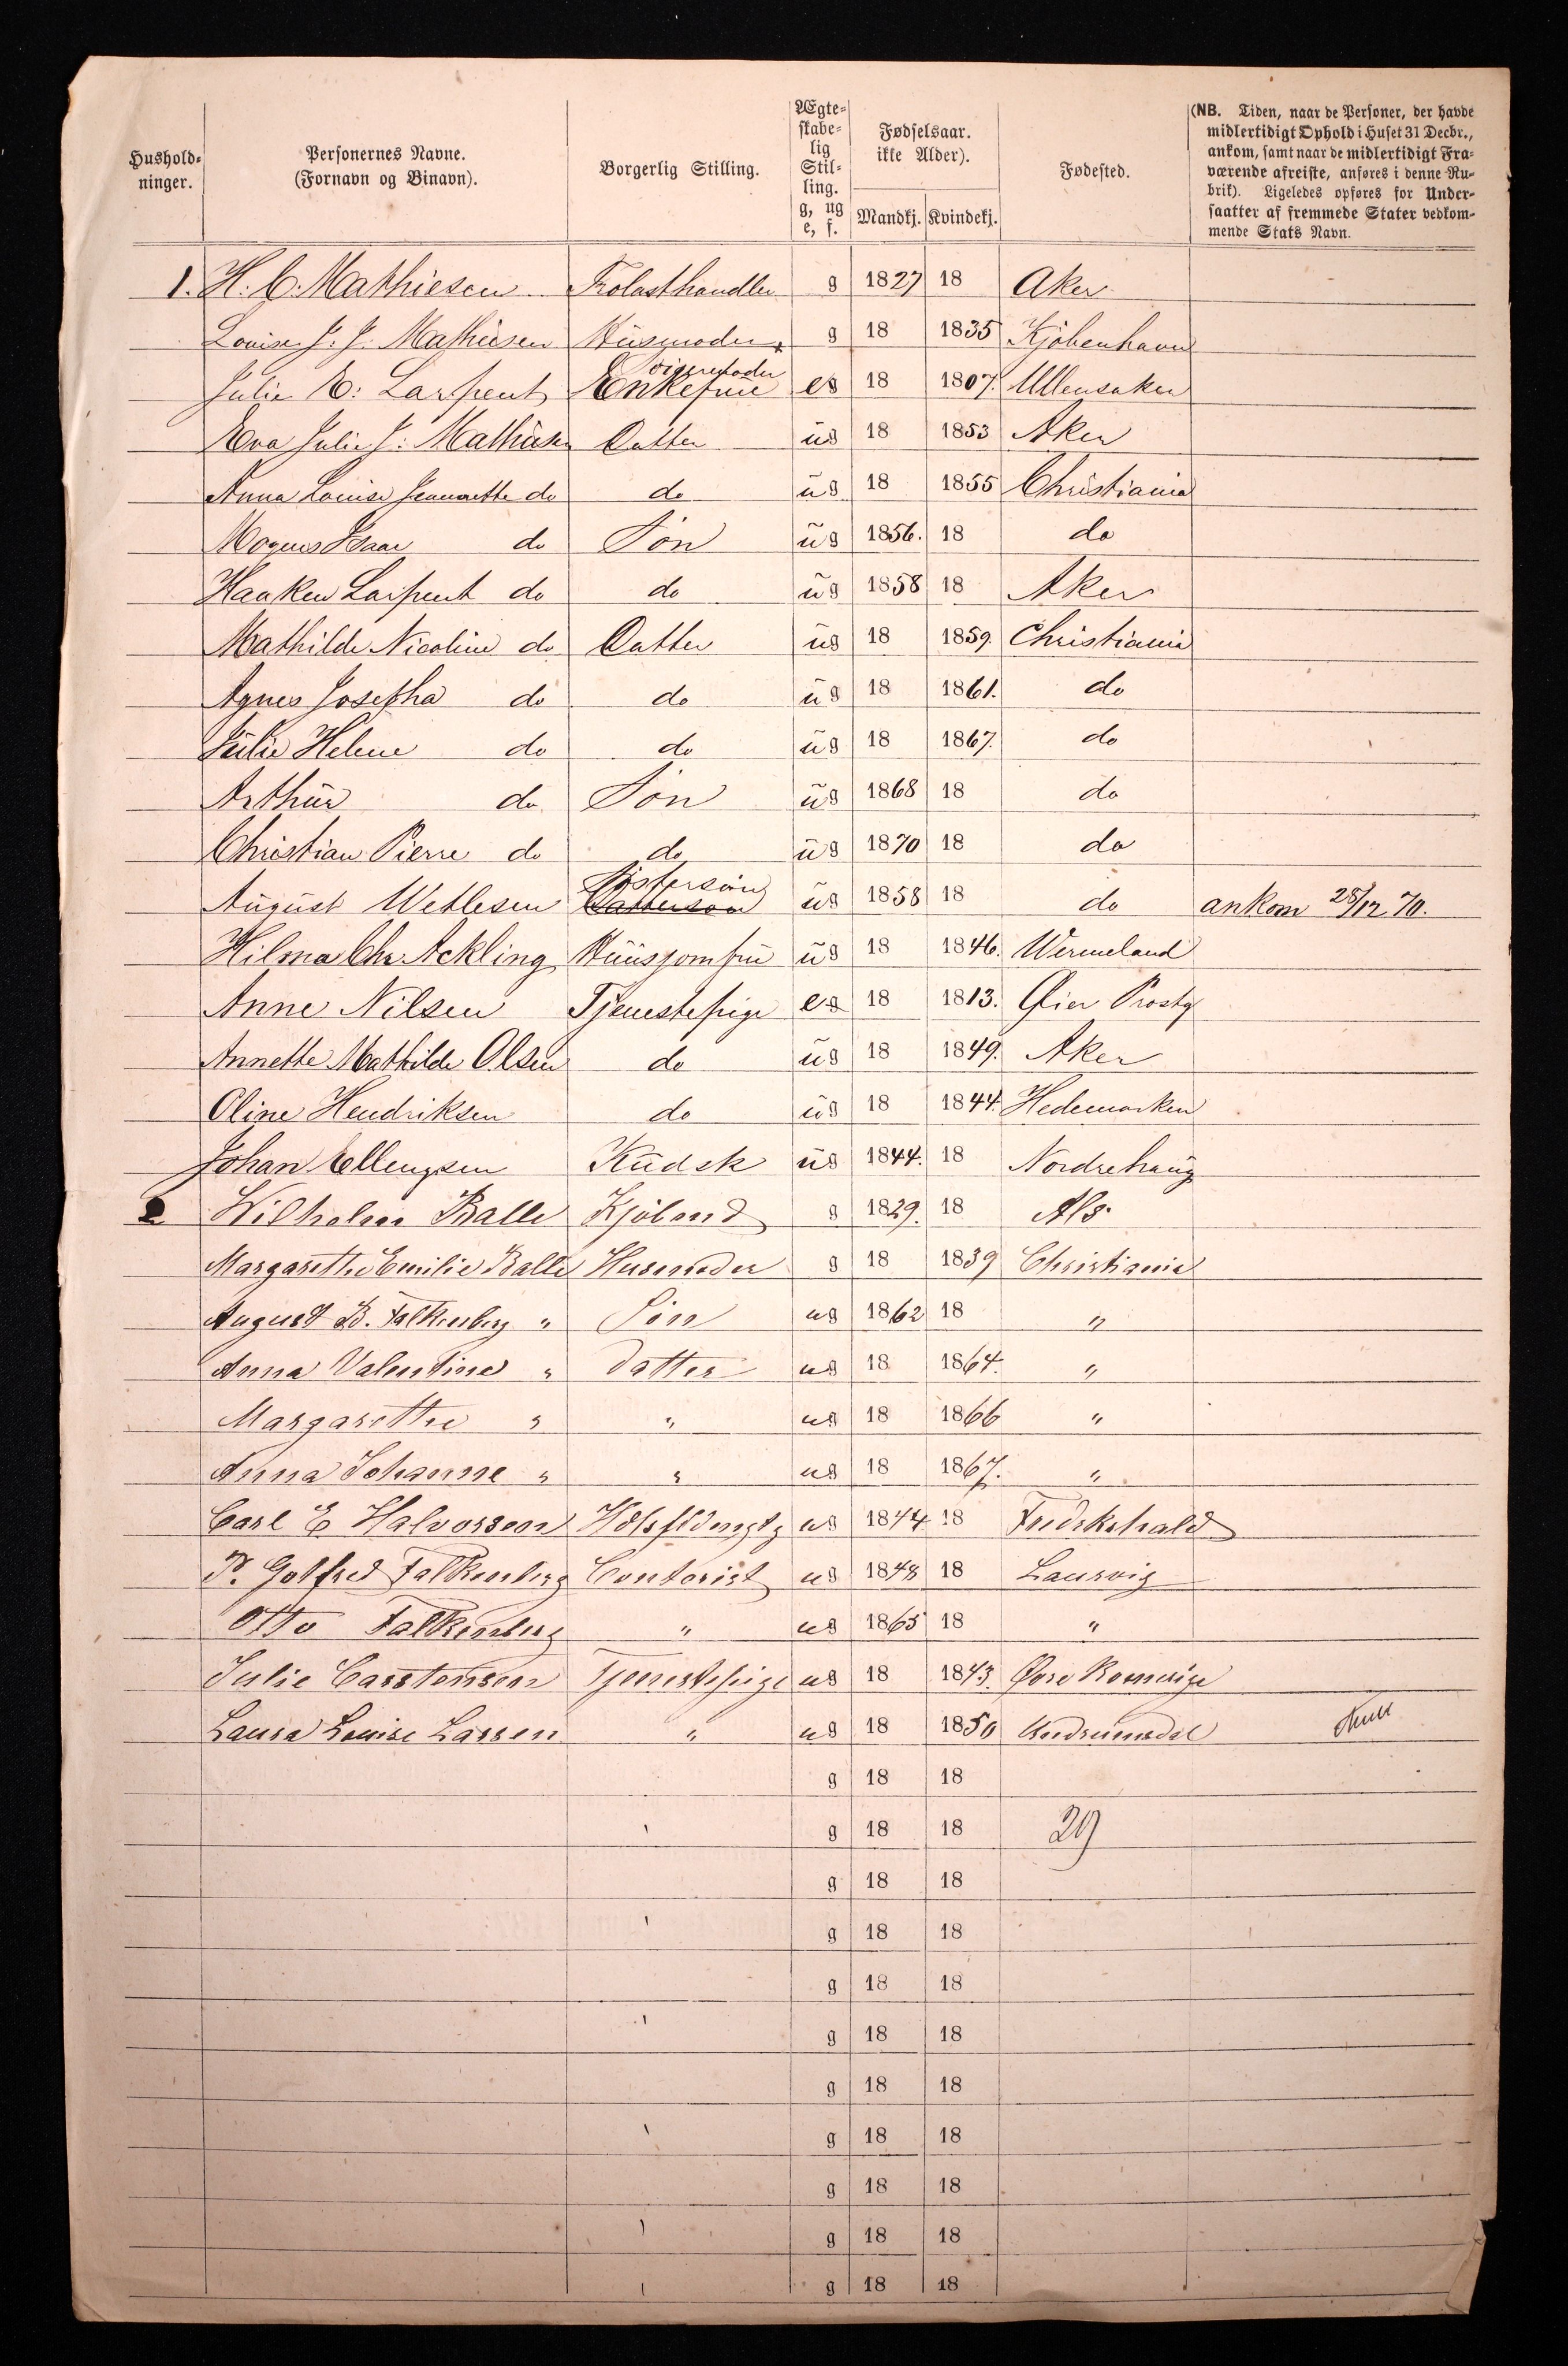 Hushold-
ninger.
Personernes Navne.
(Fornavn og Binavn).
Borgerlig Stilling.
Ægte-
skabe-
lig
Stil-
ling.
g, ug
e, f.
Fødselsaar.
ikke Alder).
Mandkj. Kvindekj.
Fødested.
(NB. Tiden, naar de Personer, der havde
midlertidigt Ophold i Huset 31 Decbr.,
ankom, samt naar de midlertidigt Fra-
værende afreiste, anføres i denne Ru-
brik). Ligeledes opføres for Under-
saatter af fremmede Stater vedkom-
mende Stats Navn.
1. H. C. Mathiesen Trælasthandler g 1827 18 Aker
Louise J. J. Mathiesen Huusmoder g 18 1835 Kjøbenhavn
Svigermoder
Julie E. Larpent Enkefrue eg 18 1807. Ullensaker
Eva Julie J. Mathiesen Datter ug 18 1853 Aker
Anna Louise Jeannette do do ug 18 1855 Christiania
Mogens Isaac do Søn ug 1856. 18 do
Haaken Larpent do do ug 1858 18 Aker
Mathilde Nicoline do Datter ug 18 1859. Christiania
Agnes Josefha do do ug 18 1861. do
Julie Helene do do ug 18 1867. do
Arthur do Søn ug 1868 18 do
Christian Pierre do do ug 1870 18 do
Søstersøn
August Wetlesen Dattersøn ug 1858 18 do ankom 28/12 70.
Hilma Chr Ackling Huusjomfru ug 18 1846. Wermeland
Anne Nilsen Tjenestepige eg 18 1813. Øier Prostg
Annette Mathilde Olsen do ug 18 1849. Aker
Oline Hendriksen do ug 18 1844. Hedemarken
Johan Ellengsen Kudsk ug 1844. 18 Nordrehaug
2 Wilhelm Balle Kjøbmd g 1829. 18 Als
Margarethe Emilie Balle Husmoder g 18 1839 Christiania
August B. Falkenberg " Søn ug 1862 18 "
Anna Valentine " Datter ug 18 1864. "
Margarethe " " ug 18 1866 "
Anna Johanne " " ug 18 1867. "
Carl E Halvorsen ug 1844 18 Fredrkshald
P. Gotfred Falkenberg Contorist ug 1848 18 Laurvig
Otto Falkenberg " ug 1865 18 "
Julie Carstensen Tjenestepige ug 18 1843. Øvre Romerige
Laura Louise Larsen " ug 18 1850 Gudrumsdal
g 18 18
g 18 18 29
g 18 18
g 18 18
g 18 18
g 18 18
g 18 18
g 18 18
g 18 18
g 18 18
g 18 18